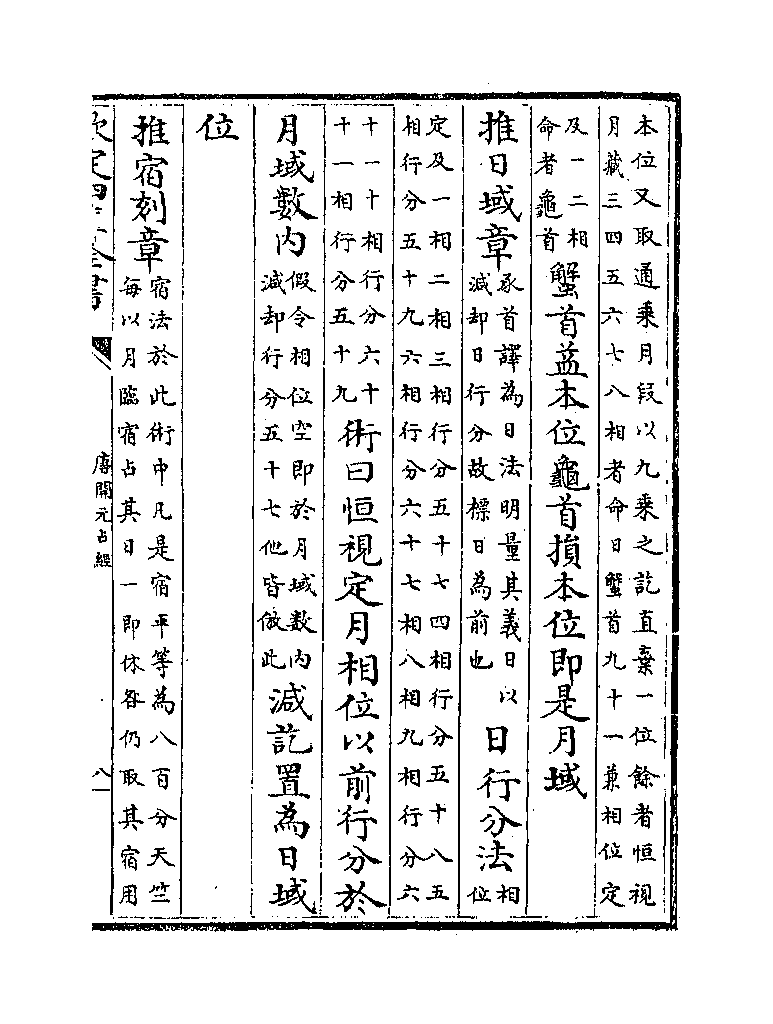 本位又取通乗月段以九乗之訖直棄一位餘者恒視
月藏三四五六七八相者命日蟹首九十一兼相位定
及一二相
命者龜首
蟹首益本位龜首損本位即是月域
推日域章
承首譯為日法明量其義日以
減却日行分故標日為前也
日行分法
相
位
定及一相二相三相行分五十七四相行分五十八五
相行分五十九六相行分六十七相八相九相行分六
十一十相行分六十
十一相行分五十九
術曰恒視定月相位以前行分於
月域數內
假令相位空即於月域数内
減却行分五十七他皆倣此
減訖置為日域
位
推宿刻章
宿法於此術中凡是宿平等為八百分天竺
每以月臨宿占其日一即休咎仍取其宿用
欽定四庫全書
唐開元占經
八